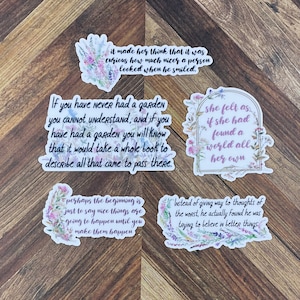 it made her think that it was
curious how much nicer a person
looked when he smiled.
If you have never had a garden
you cannot understand, and if you
have had a garden you will know
that it would take a whole book to
describe all that came to pass there.
she felt as
if she had
found a
world all
her own
perhaps the beginning is
just to say nice things are
going to happen until you
make them happen
Instead of giving way to thoughts of
the worst, he actually found he was
trying to believe in better things.